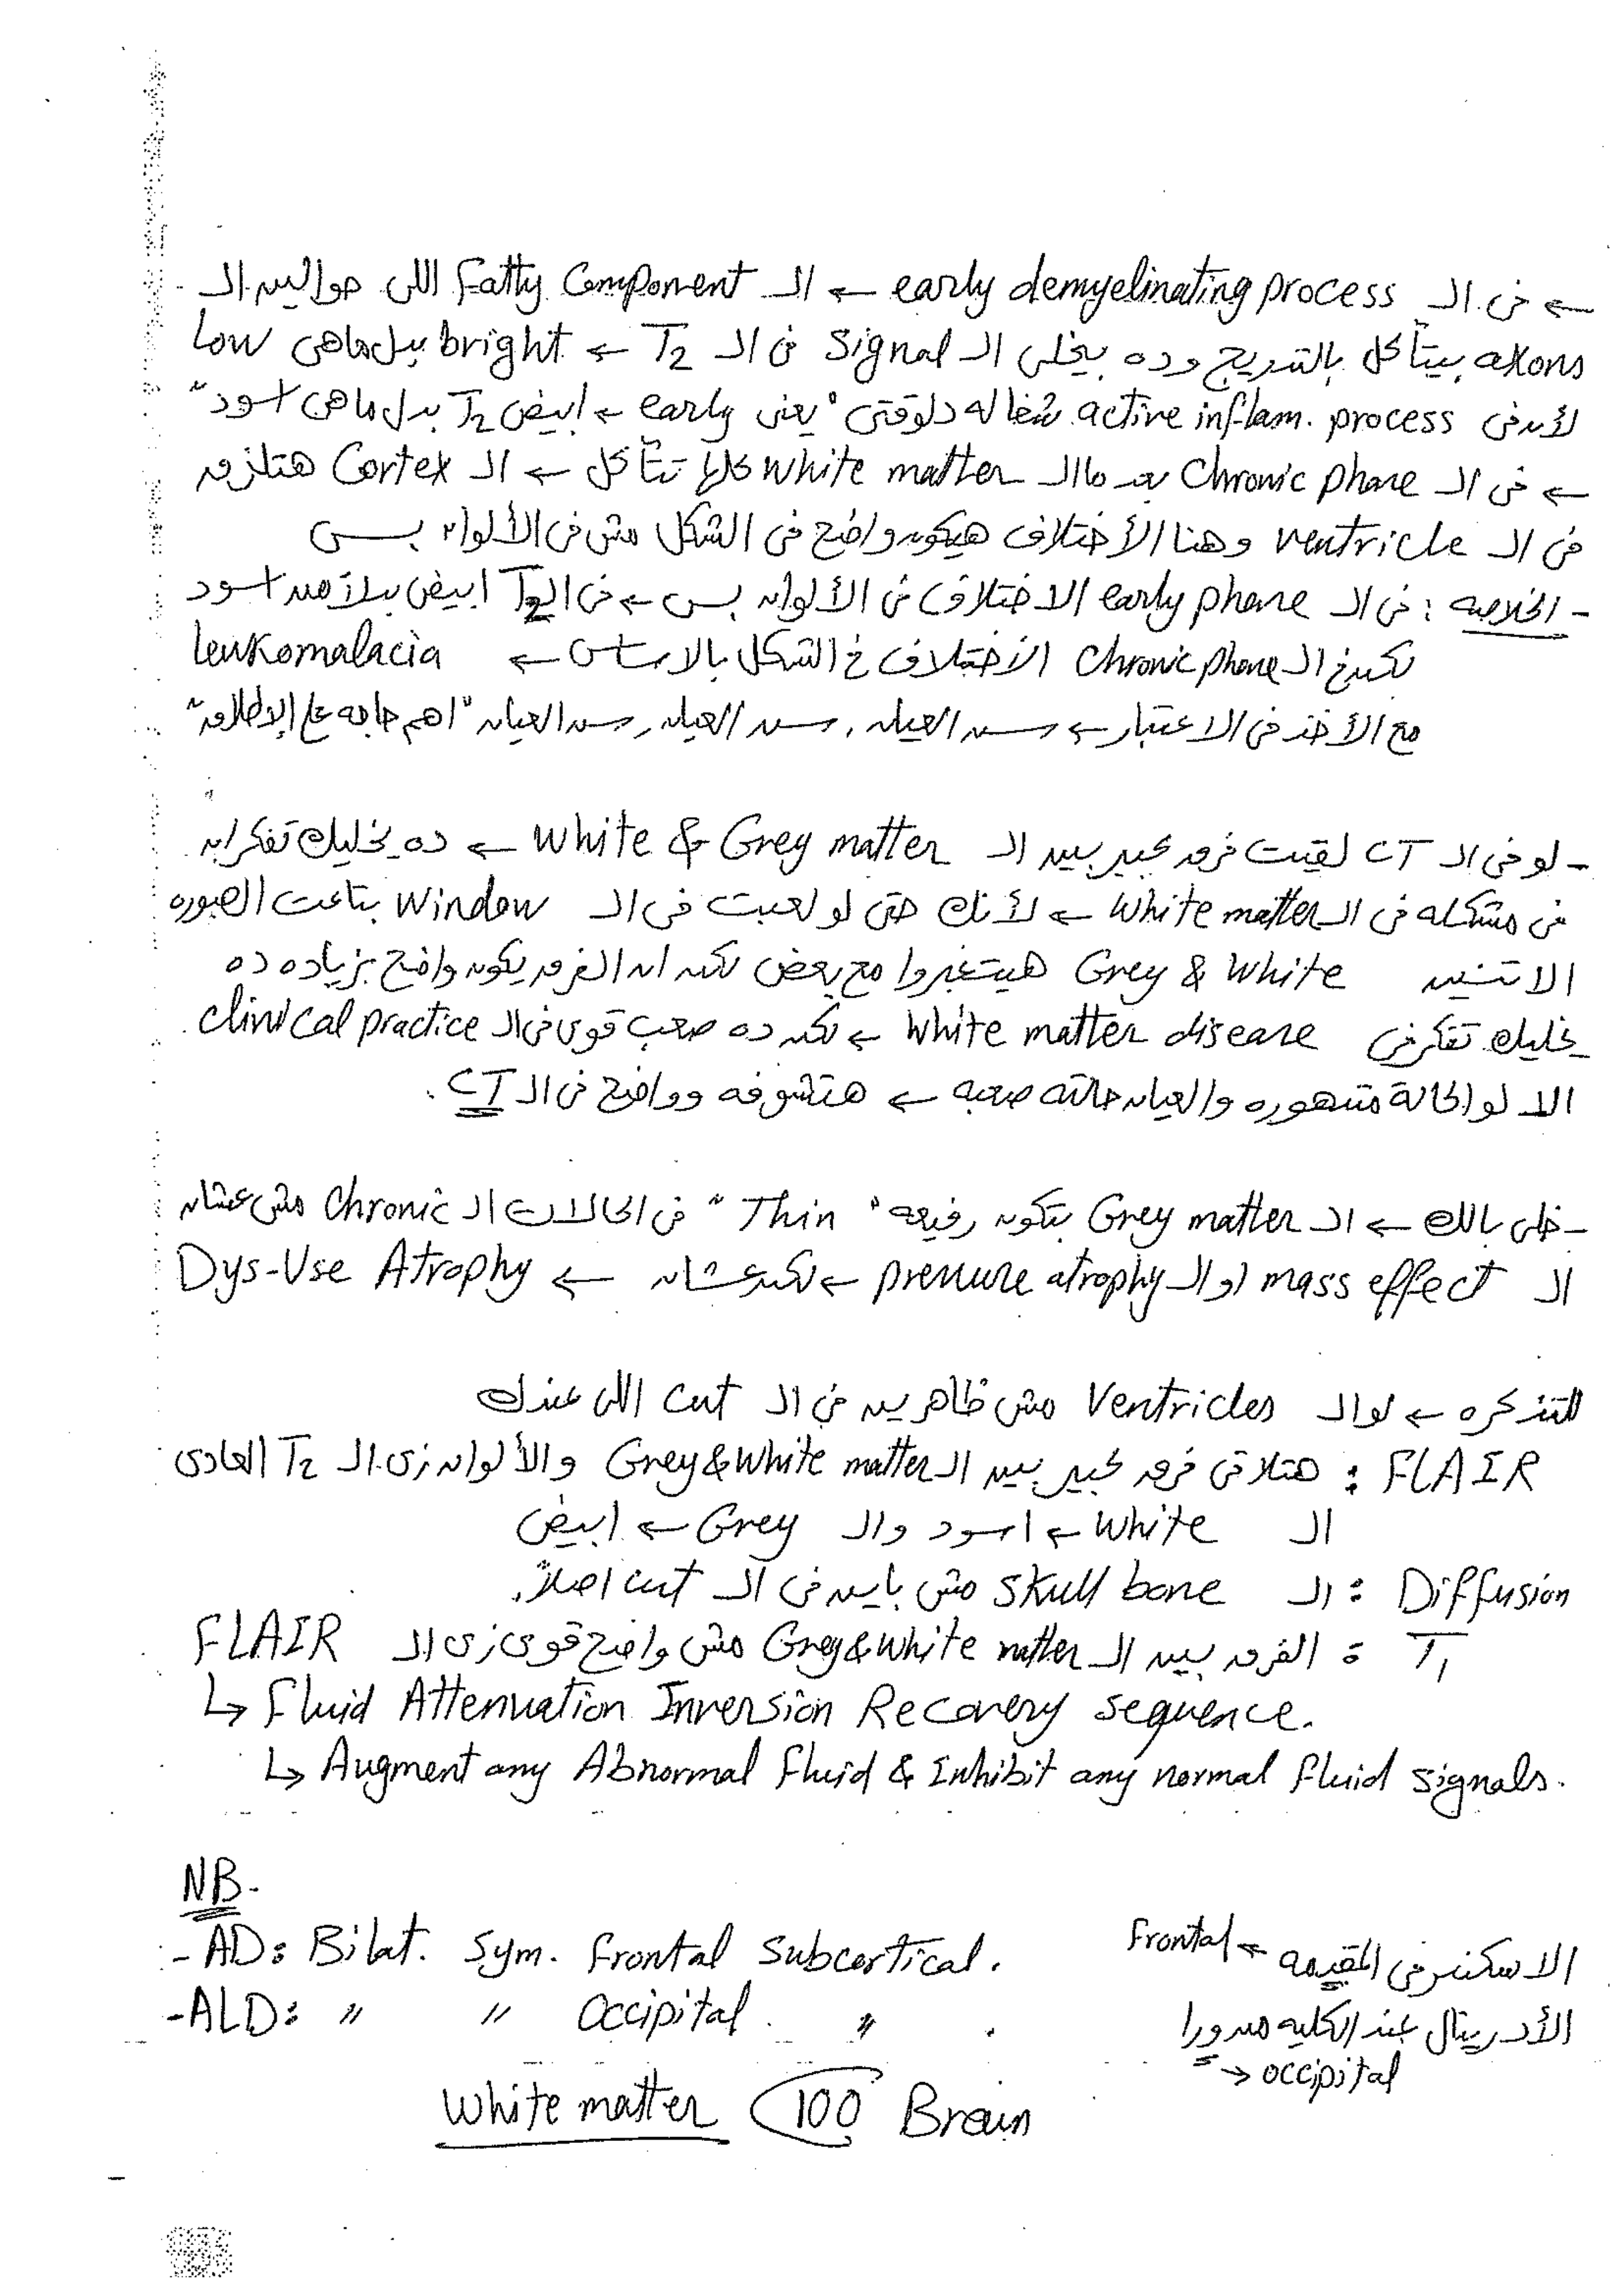 ← فى الـ early demyelinating process ← الـ Fatty Component اللى حوالين الـ
axons بيتآكل بالتدريج وده بيخلى الـ Signal فى الـ T2 ← bright بدل ماهى Low
لأن فى active inflam. process شغاله دلوقتى "يعنى early ← ابيض T2 بدل ماهى اسود"
← فى الـ Chronic phase بعد ماالـ White matter كلها تتآكل ← الـ Cortex هتلزق
فى الـ ventricle وهنا الأختلاف هيكون واضح فى الشكل مش فى الألوان بس
- الخلاصه : فى الـ early phase الاختلاف فى الألوان بس ← فى الـ T2 ابيض بدلاً من اسود
لكن فى الـ Chronic phase الأختلاف فى الشكل بالاساس ← leukomalacia
مع الأخذ فى الاعتبار ← سن العيان , سن العيان , سن العيان "اهم حاجه على الإطلاق"
- لو فى الـ CT لقيت فرق كبير بين الـ White & Grey matter ← ده يخليك تفكر ان
فى مشكله فى الـ White matter ← لأنك حتى لو لعبت فى الـ Window بتاعت الصوره
الاتنين Grey & White هيتغيروا مع بعض لكن ان الفرق يكون واضح بزياده ده
يخليك تفكر فى White matter disease ← لكن ده صعب قوى فى الـ clinical practice
الا لو الحالة متدهوره والعيان حالته صعبه ← هتشوفه وواضح فى الـ CT.
- خلى بالك ← الـ Grey matter بتكون رفيعه "Thin" فى الحالات الـ Chronic مش عشان
الـ mass effect او الـ pressure atrophy ← لكن عشان ← Dys-Use Atrophy
للتذكره ← لو الـ Ventricles مش ظاهرين فى الـ cut اللى عندك
FLAIR : هتلاقى فرق كبير بين الـ Grey & White matter والألوان زى الـ T2 العادى
الـ White ← اسود والـ Grey ← ابيض
Diffusion : الـ skull bone مش باين فى الـ cut اصلاً.
T1 : الفرق بين الـ Grey & White matter مش واضح قوى زى الـ FLAIR
↳ Fluid Attenuation Inversion Recovery sequence.
↳ Augment any Abnormal fluid & Inhibit any normal fluid signals.
NB-
- AD: Bilat. Sym. frontal Subcortical.
الاسكندر فى المقدمه ← Frontal
- ALD: " " Occipital " .
الأدرينال عند الكليه من ورا
→ occipital
White matter 100 Brain